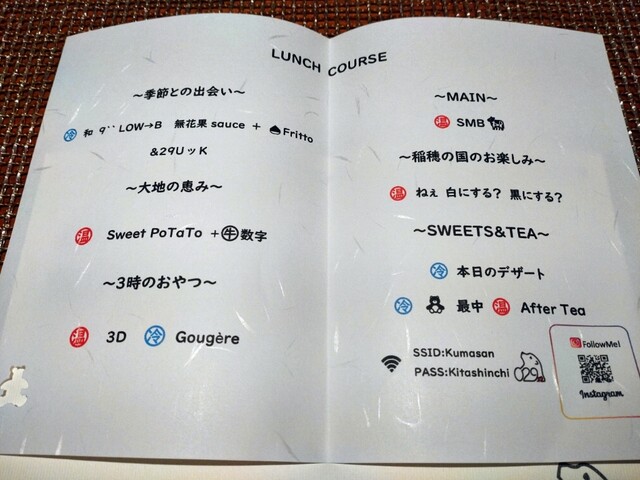 LUNCH COURSE
～季節との出会い～
冷 和 9'' LOW→B 無花果 sauce + Fritto
&29UッK
～大地の恵み～
温 Sweet PoTaTo +牛数字
～3時のおやつ～
温 3D 冷 Gougère
～MAIN～
温 SMB
～稲穂の国のお楽しみ～
温 ねぇ 白にする? 黒にする?
～SWEETS&TEA～
冷 本日のデザート
冷 最中 温 After Tea
SSID:Kumasan
PASS:Kitashinchi
029
FollowMe!
Instagram